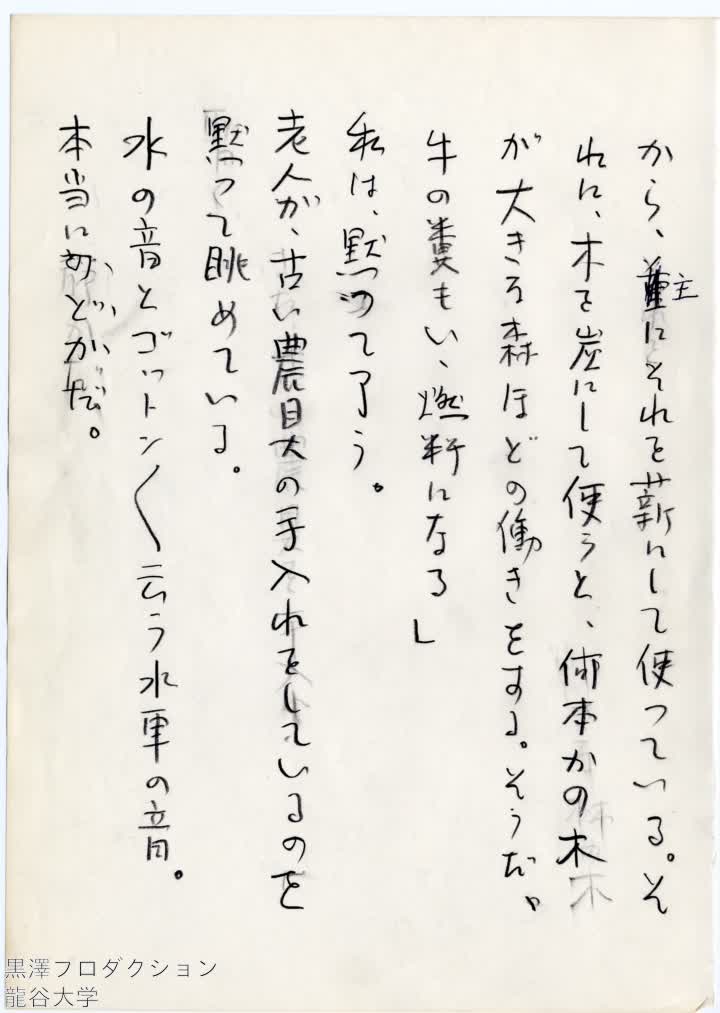 から、主にそれを薪にして使っている。そ
れに、木を炭にして使うと、何本かの木
が大きる森ほどの働きをする。そうだ、
牛の糞もい、燃料になる」
私は、黙って了う。
老人が、古い農具の手入れをしているのを
黙って眺めている。
水の音とゴットン〱云う水車の音。
本当にのどかだ。
黒澤プロダクション
龍谷大学